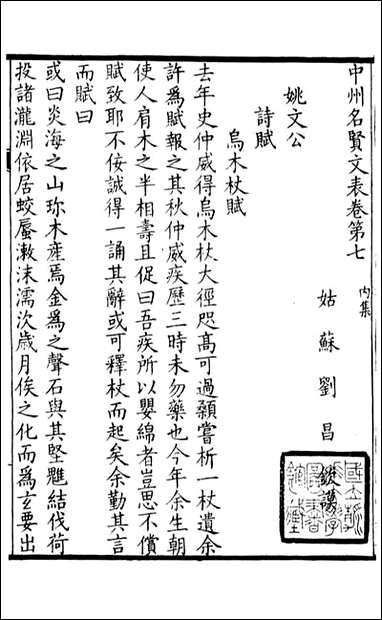 中州名賢文表卷第七 內集
姑蘇劉昌
姚文公
詩賦
烏木杖賦
去年史仲威得烏木杖大徑咫髙可過顙嘗析一杖遺余
許爲賦報之其秋仲威疾歷三時未勿藥也今年余生朝
使人肩木之半相壽且促曰吾疾所以嬰綿者豈思不償
賦致耶不侫誠得一誦其辭或可釋杖而起矣余勤其言
而賦曰
或曰炎海之山珎木產焉金爲之聲石與其堅魋結伐荷
投諸瀧淵依居蛟蜃漱沫濡次歲月俟之化而爲玄要出